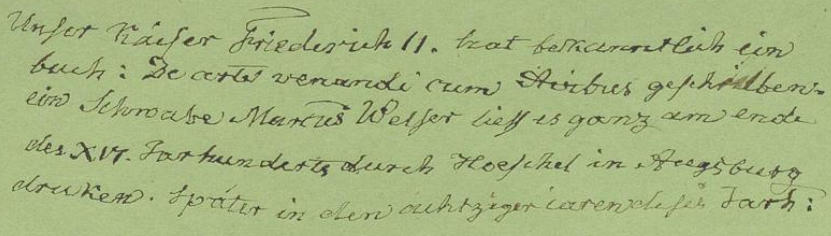 Unser Kaiser Friederich II. hat bekanntlich ein
buch: De arte venandi cum Avibus geschrieben.
ein Schwabe Marcus Welser ließ es ganz am ende
des XVI. Jarhunderts durch Hoeschel in Augsburg
druken. Später in den achtziger iaren dises Jarh: